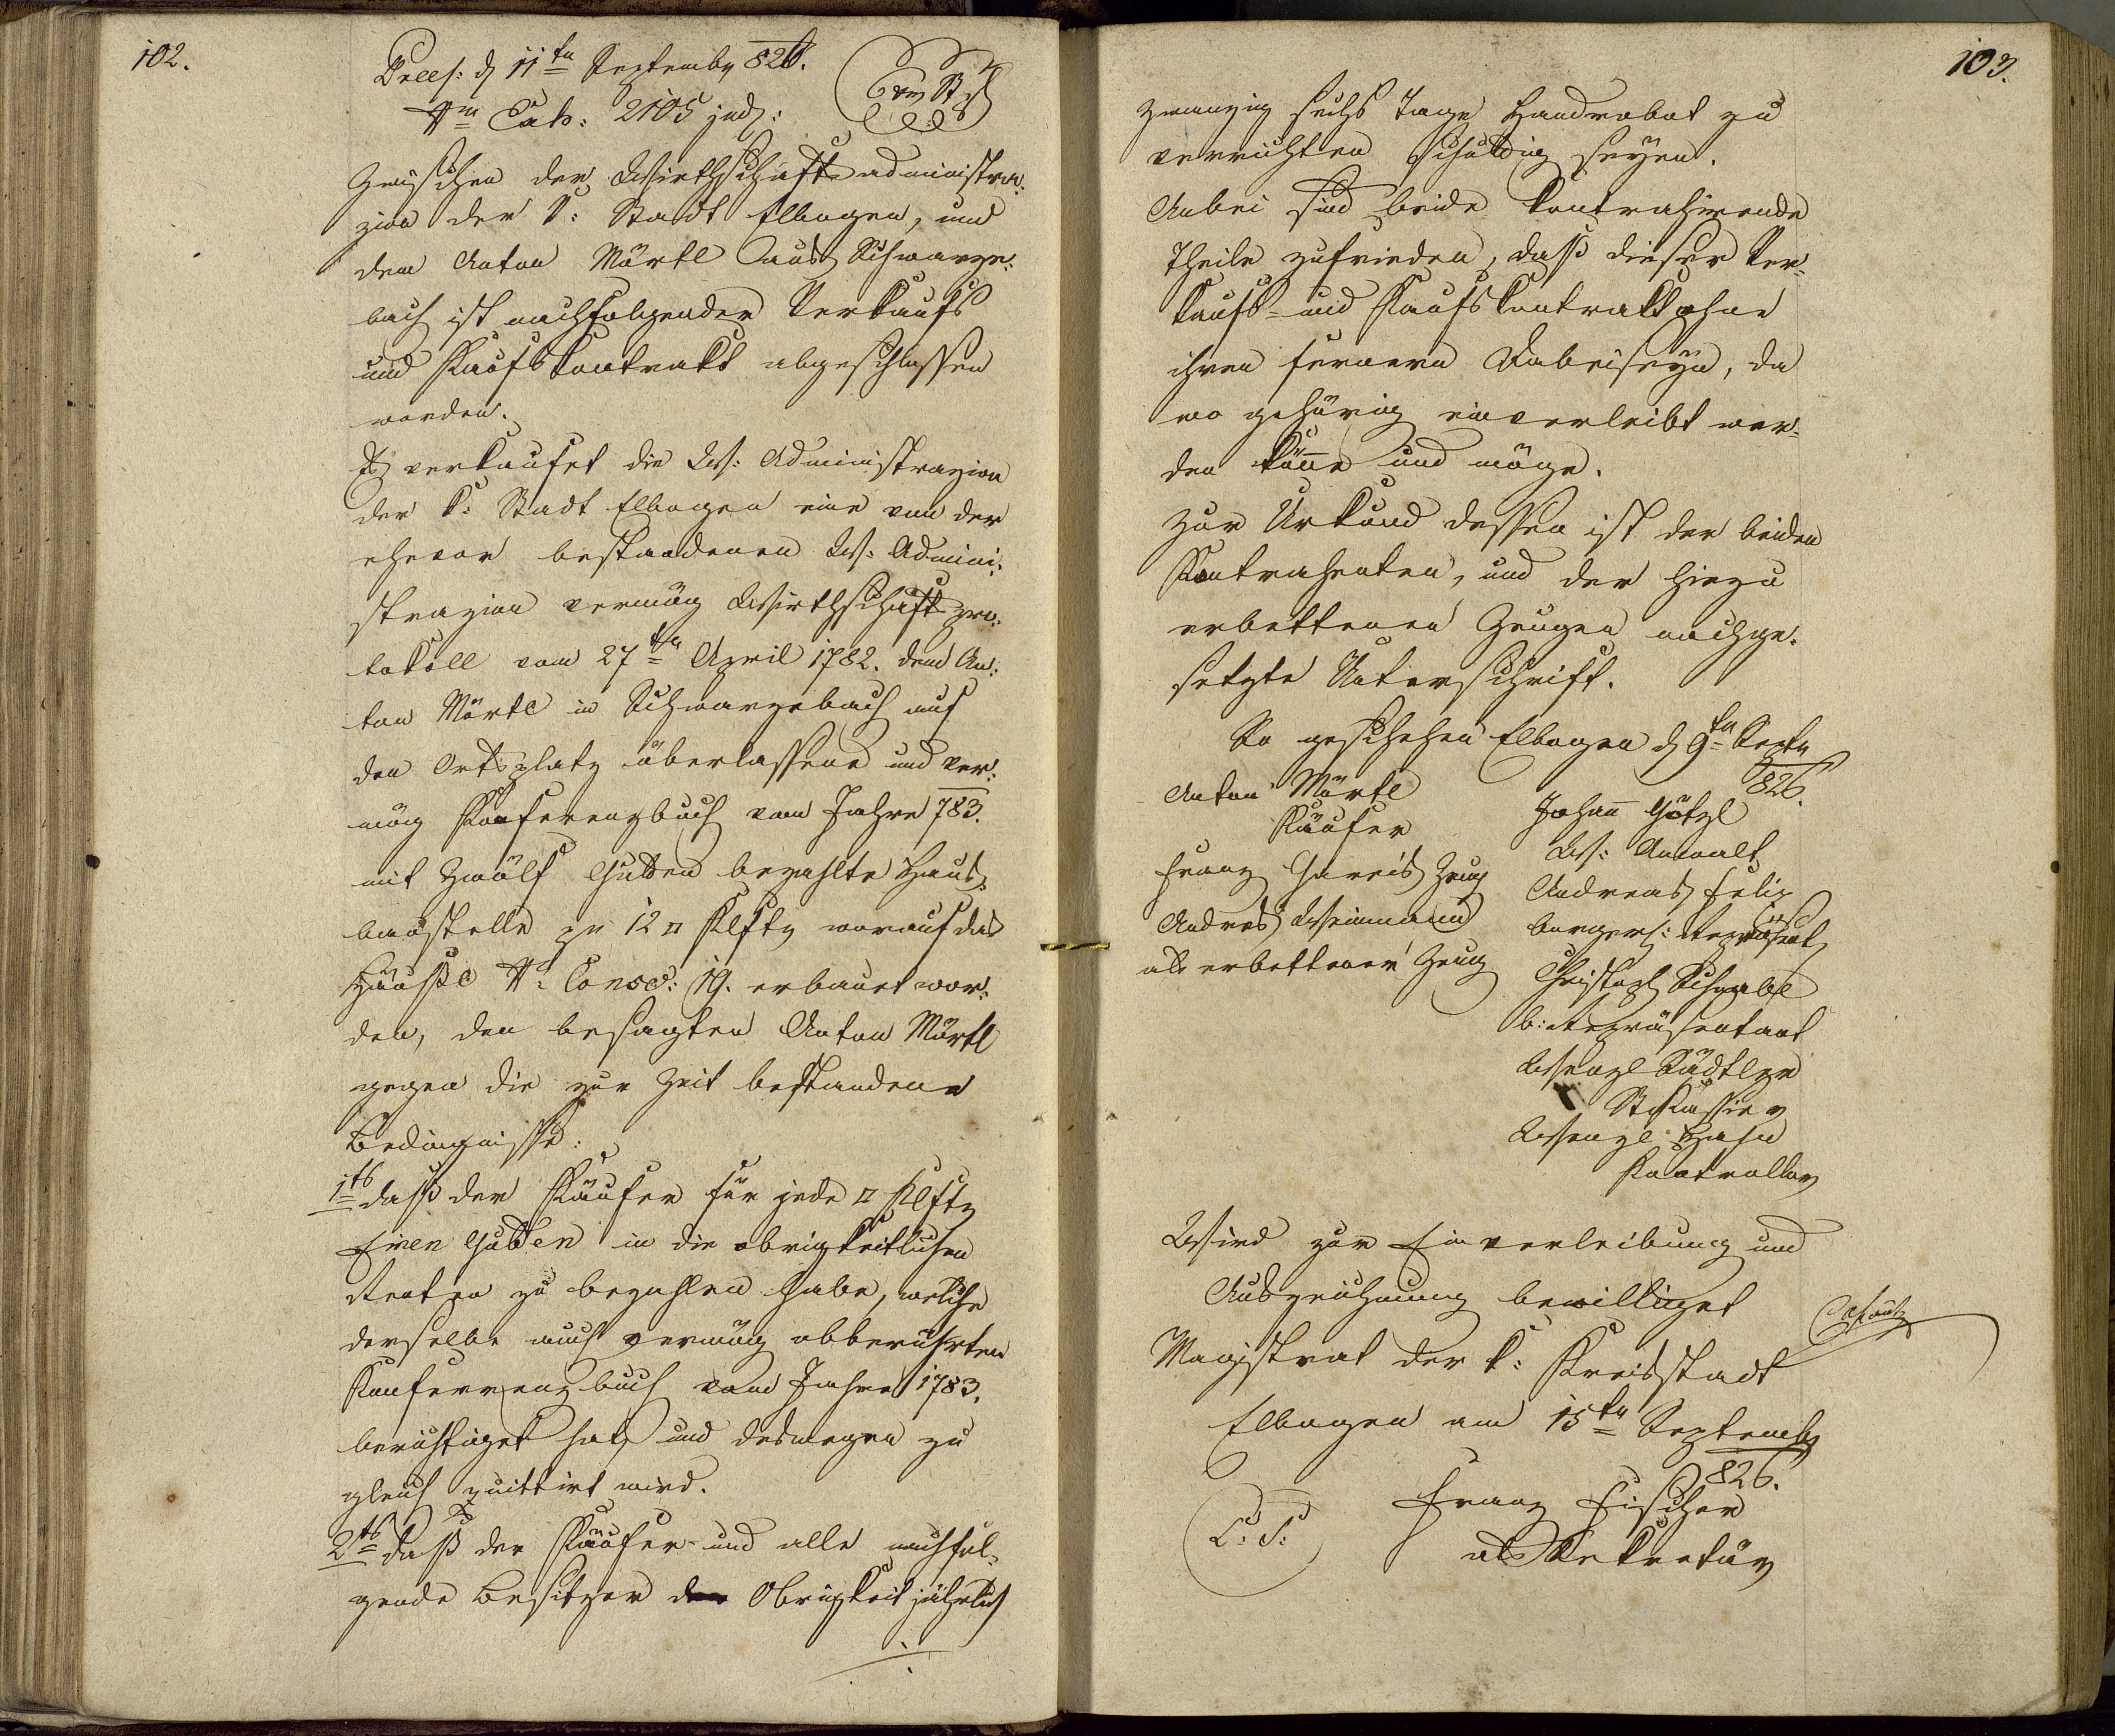 102.
Præs: d 11ten Septembr 826.
Nro Exh: 2105 jud:
Zwischen der Wirthschaftsadministra-
zion der k: Stadt Elbogen, und
dem Anton Märtl aus Schwarze-
bach ist nachfolgender Verkaufs
und Kaufskontrakt abgeschlossen
worden.
Es verkaufet die Ws: Administrazion
der k: Stadt Elbogen eine von der
ehevor bestandenen Ws: Admini-
strazion vermög Wirthschaftspro-
tokoll vom 27ten April 1782. dem An-
ton Märtl in Schwarzebach auf
den Ortsplatz überlassene und ver-
mög Konferenzbuch vom Jahre 783.
mit Zwölf Gulden bezahlte Haus-
baustelle zu 12 □ Klftr worauf das
Häusl Nro Consc: 19. erbauet wor-
den, den besagten Anton Märtl
gegen die zur Zeit bestandene
Bedingnisse:
1tens daß der Käufer für jede □ Klftr
Einen Gulden in die obrigkeitlichen
Renten zu bezahlen habe, welche
derselbe auch vermög obberührten
Konferrenzbuch vom Jahre 1783.
berichtiget hat, und deswegen zu
gleich quittirt wird.
2tens daß der Käufer und alle nachfol-
gende Besitzer der Obrigkeit jährlich
./.
103.
zwanzig sechs Tage Handrobot zu
verrichten schuldig seyen.
Anbei sind beide kontrahirende
Theile zufrieden, daß dieser Ver-
kaufs- und Kaufskontrakt ohne
ihren fernern Dabeiseyn, da
wo gehörig einverleibt wer-
den könne und möge.
Zur Urkund dessen ist der beiden
Kontrahenten, und der hiezu
erbettenen Zeugen nachge-
setzte Unterschrift.
So geschehen Elbogen d 9ten Septr
826.
Anton Märtl
Käufer
Franz Zeug
Andres Weinmann
als erbettener Zeug
Johann Götzl
Ws: Anwalt
Andreas Felix
burgerl: Repräsent
Christoph Schwabl
b: Repräsentant
Wenzl
Stkassier
Wenzl Hahn
Kontrollor
Wird zur Einverleibung und
Auszeichnung bewilliget
Magistrat der k: Kreisstadt
Elbogen am 15ten Septembr
826.
L: S:
Franz Fischer
als Sekretär